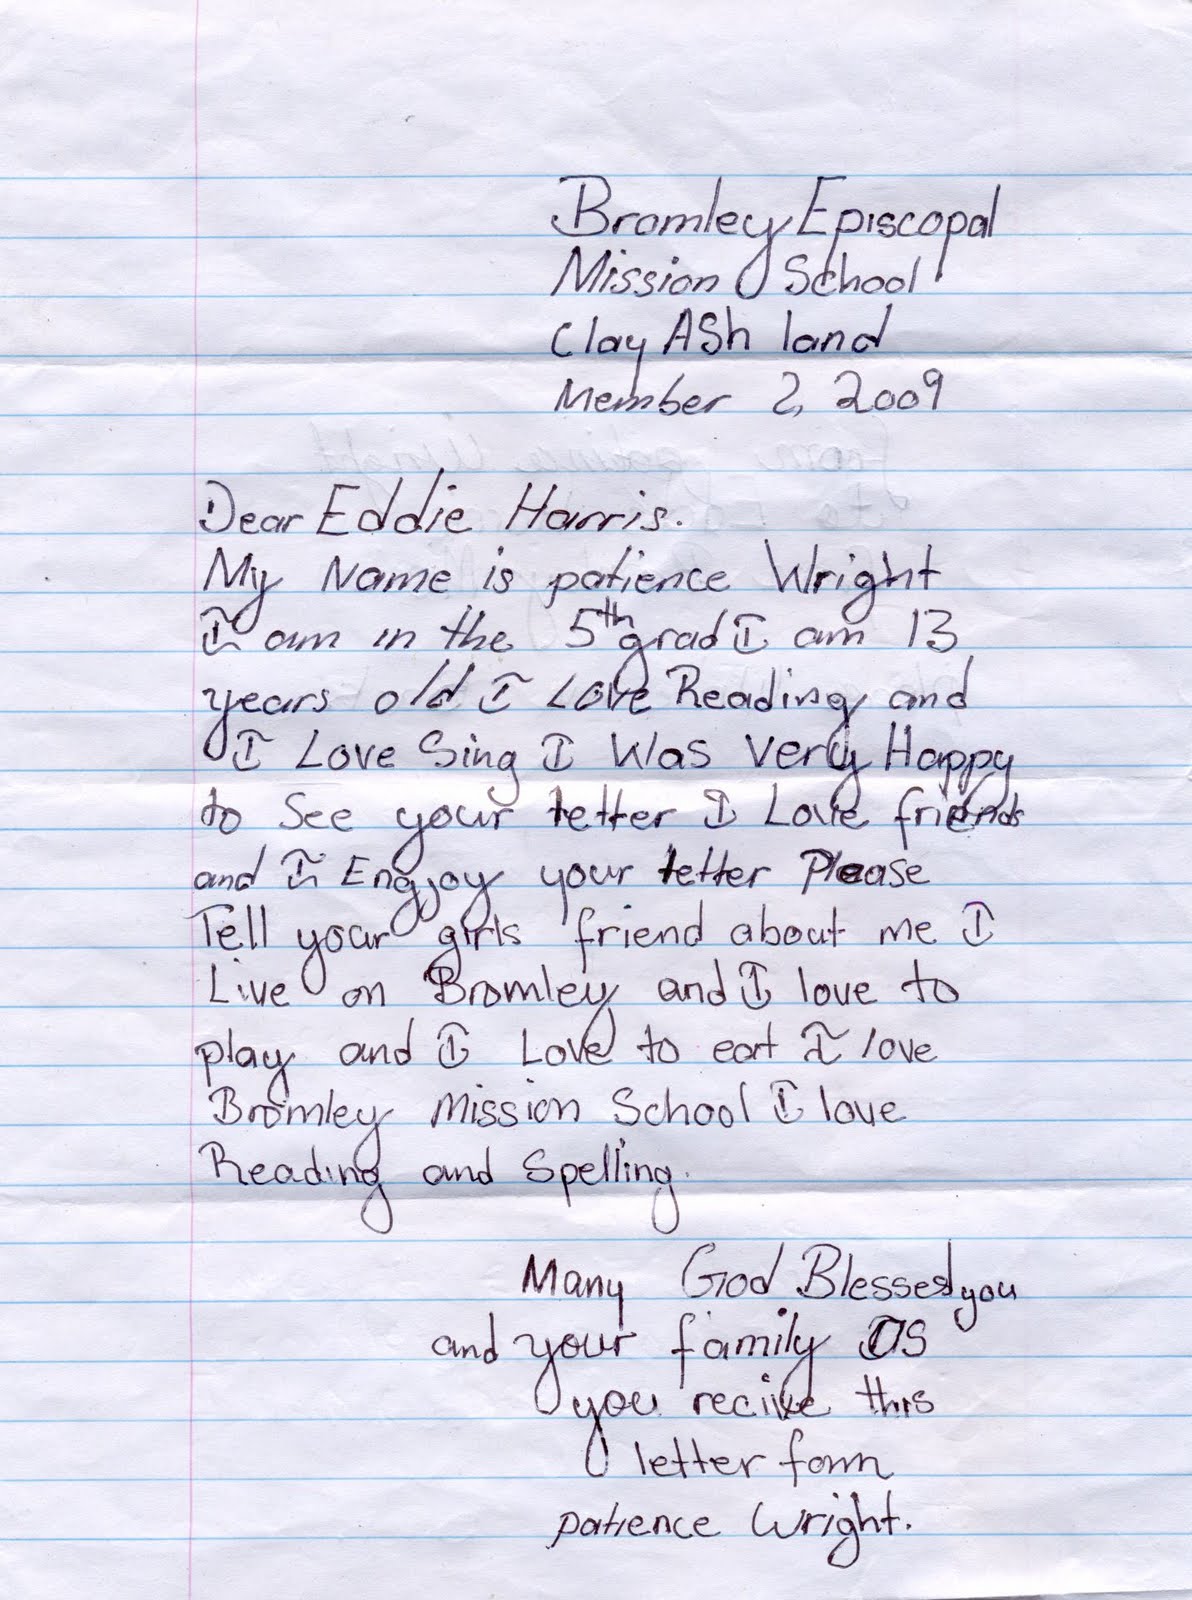 Bromley Episcopal
Mission School
Clay ASh land
Member 2, 2009
Dear Eddie Harris.
My Name is patience Wright
I am in the 5th grad I am 13
years old I LOVE Reading and
I Love Sing I Was Very Happy
to See your tetter I Love friends
and I Engjoy your tetter Please
Tell your girls friend about me I
Live on Bromley and I love to
play and I Love to eat I love
Bromley Mission School I love
Reading and Spelling.
Many God Blessed you
and your family OS
you recive this
letter fomn
patience Wright.